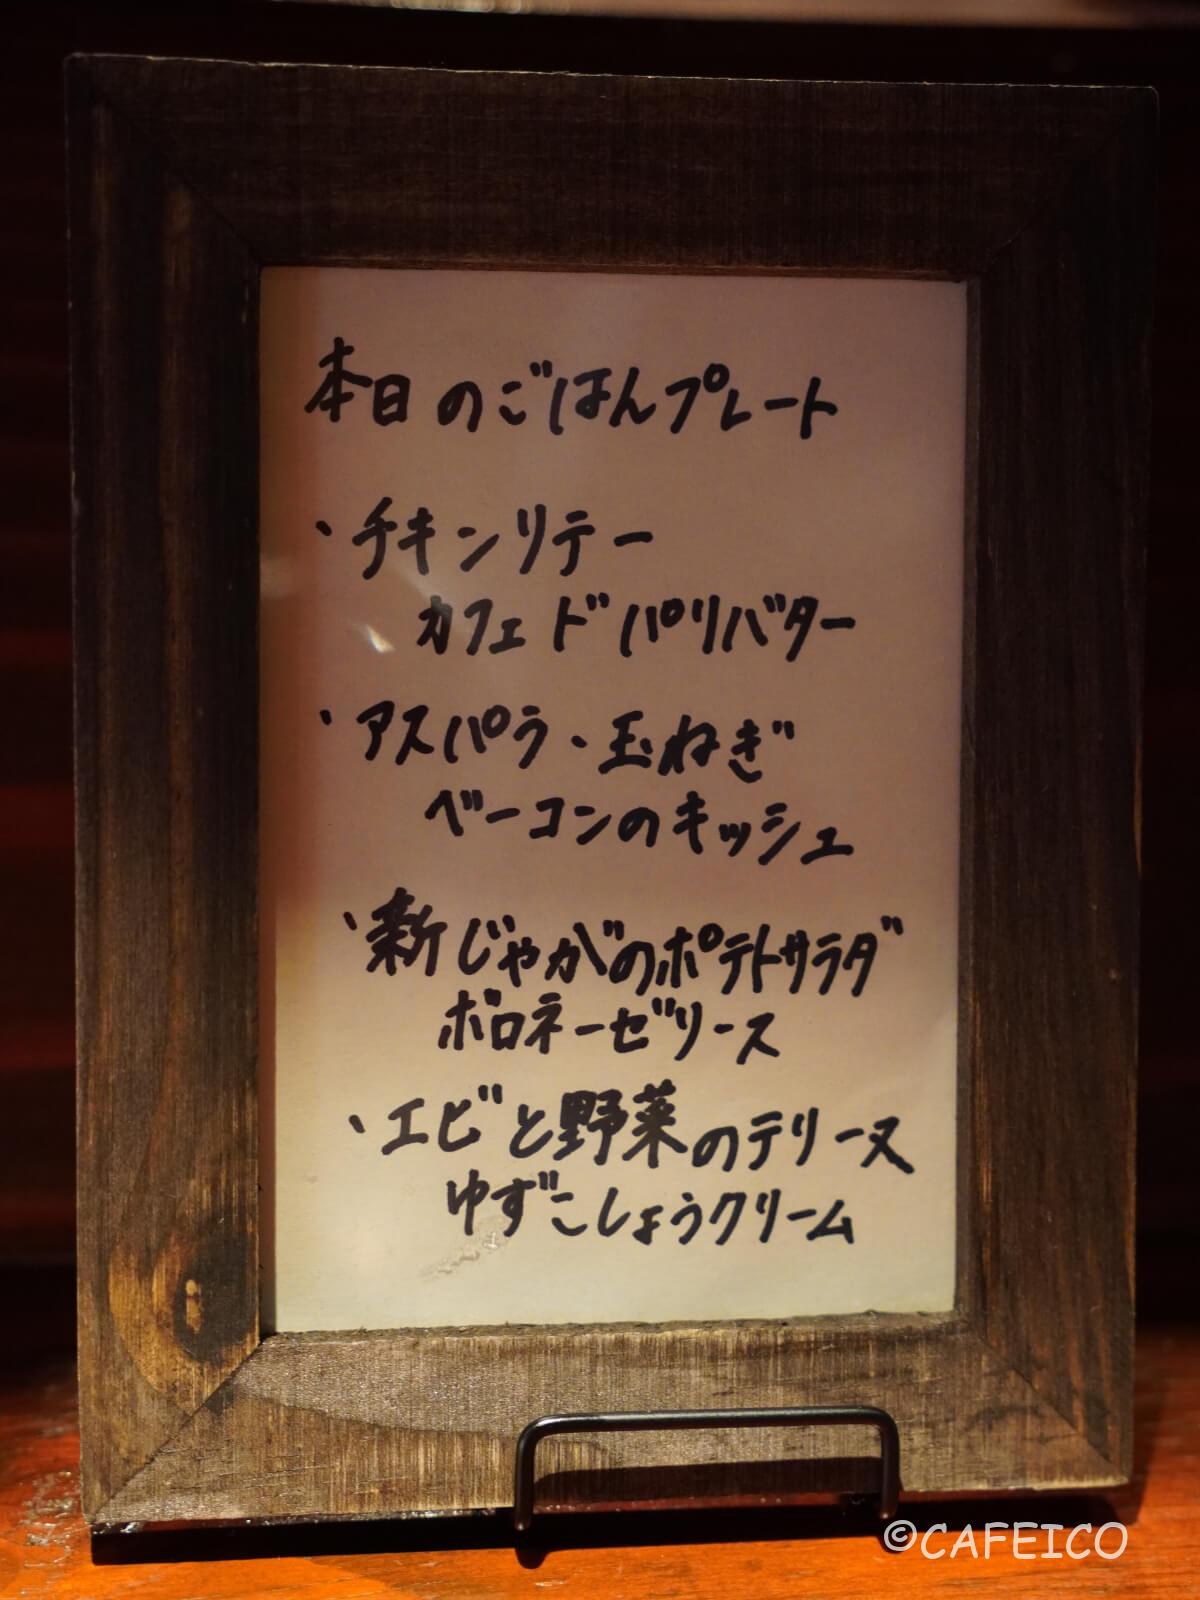 本日のごはんプレート
・チキンソテー
カフェドパリバター
・アスパラ、玉ねぎ
ベーコンのキッシュ
・新じゃがのポテトサラダ
ボロネーゼソース
・エビと野菜のテリーヌ
ゆずこしょうクリーム
©CAFEICO